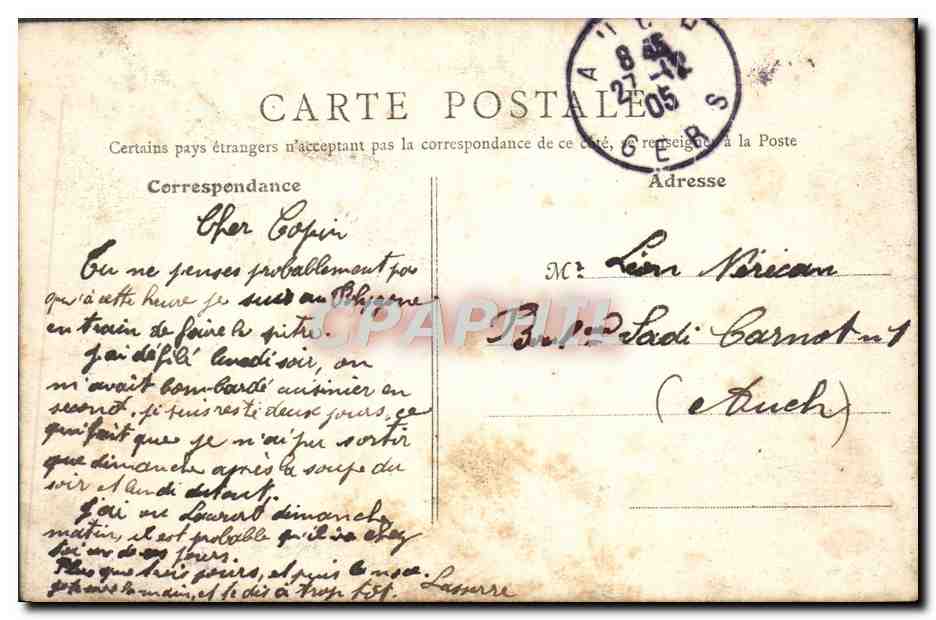 CARTE POSTALE
Certains pays étrangers n'acceptent pas la correspondance de ce côté, se renseigner à la Poste
8 45
27 -12
05
GERS
Correspondance
Cher Copin
Tu ne penses probablement pas
qu'à cette heure je suis au Polygone
en train de faire le pitre.
J'ai défilé lundi soir, on
m'avait bombardé cuisinier en
second, je suis resté deux jours, ce
qui fait que je n'ai pu sortir
que dimanche après la soupe du
soir et lundi
J'ai vu Laurent dimanche
matin, il est probable qu'il ira chez
toi un de ces jours.
Plus que trois jours, et puis la noce.
je te serre la main, et te dis à trop tôt. Lasserre
Adresse
Mr. Léon Nérican
Bould Sadi Carnot n°1
(Auch)
CPAPHIL